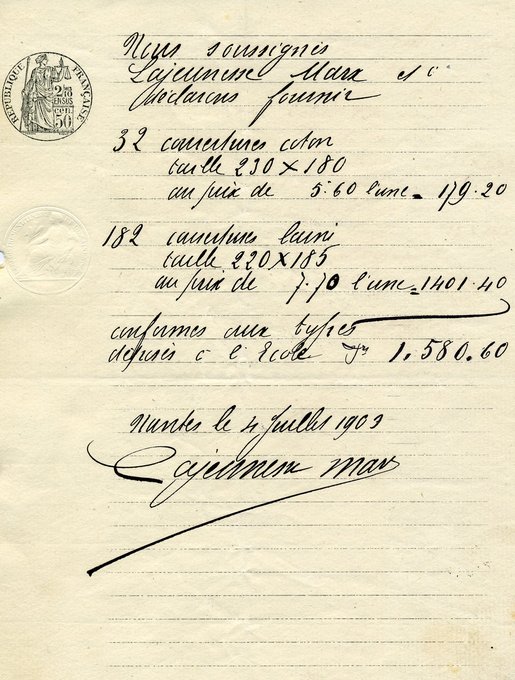 RÉPUBLIQUE FRANÇAISE
2/10 EN SUS
50 CEN
Nous soussignés
Lajeunesse Marx et Cie
déclarons fournir
32 couvertures coton
taille 230 X 180
au prix de 5.60 l'une = 179.20
182 couvertures laine
taille 220 X 185
au prix de 7.70 l'une = 1401.40
conformes aux types
déposés à l'Ecole 1.580.60
Nantes le 4 Juillet 1903
Lajeunesse Marx